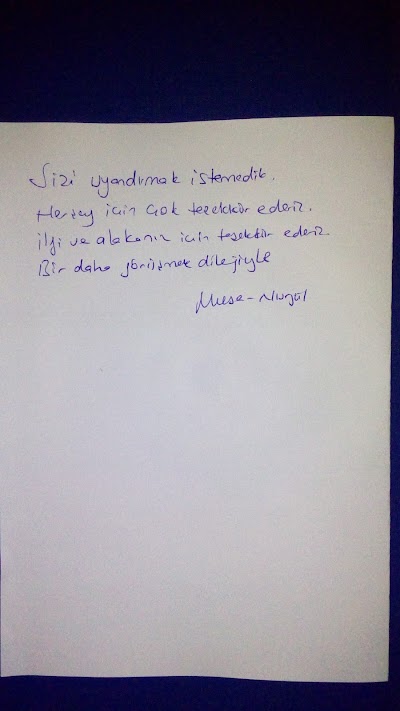 Sizi uyandırmak istemedik.
Herşey için çok teşekkür ederiz.
İlgi ve alakanız için teşekkür ederiz.
Bir daha görüşmek dileğiyle
Musa - Nurgül